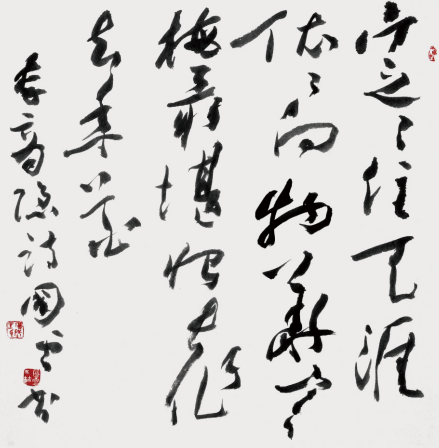 定〻住天涯
依〻向物华寒
梅最堪恨长作
去年花
李商隐诗国云书